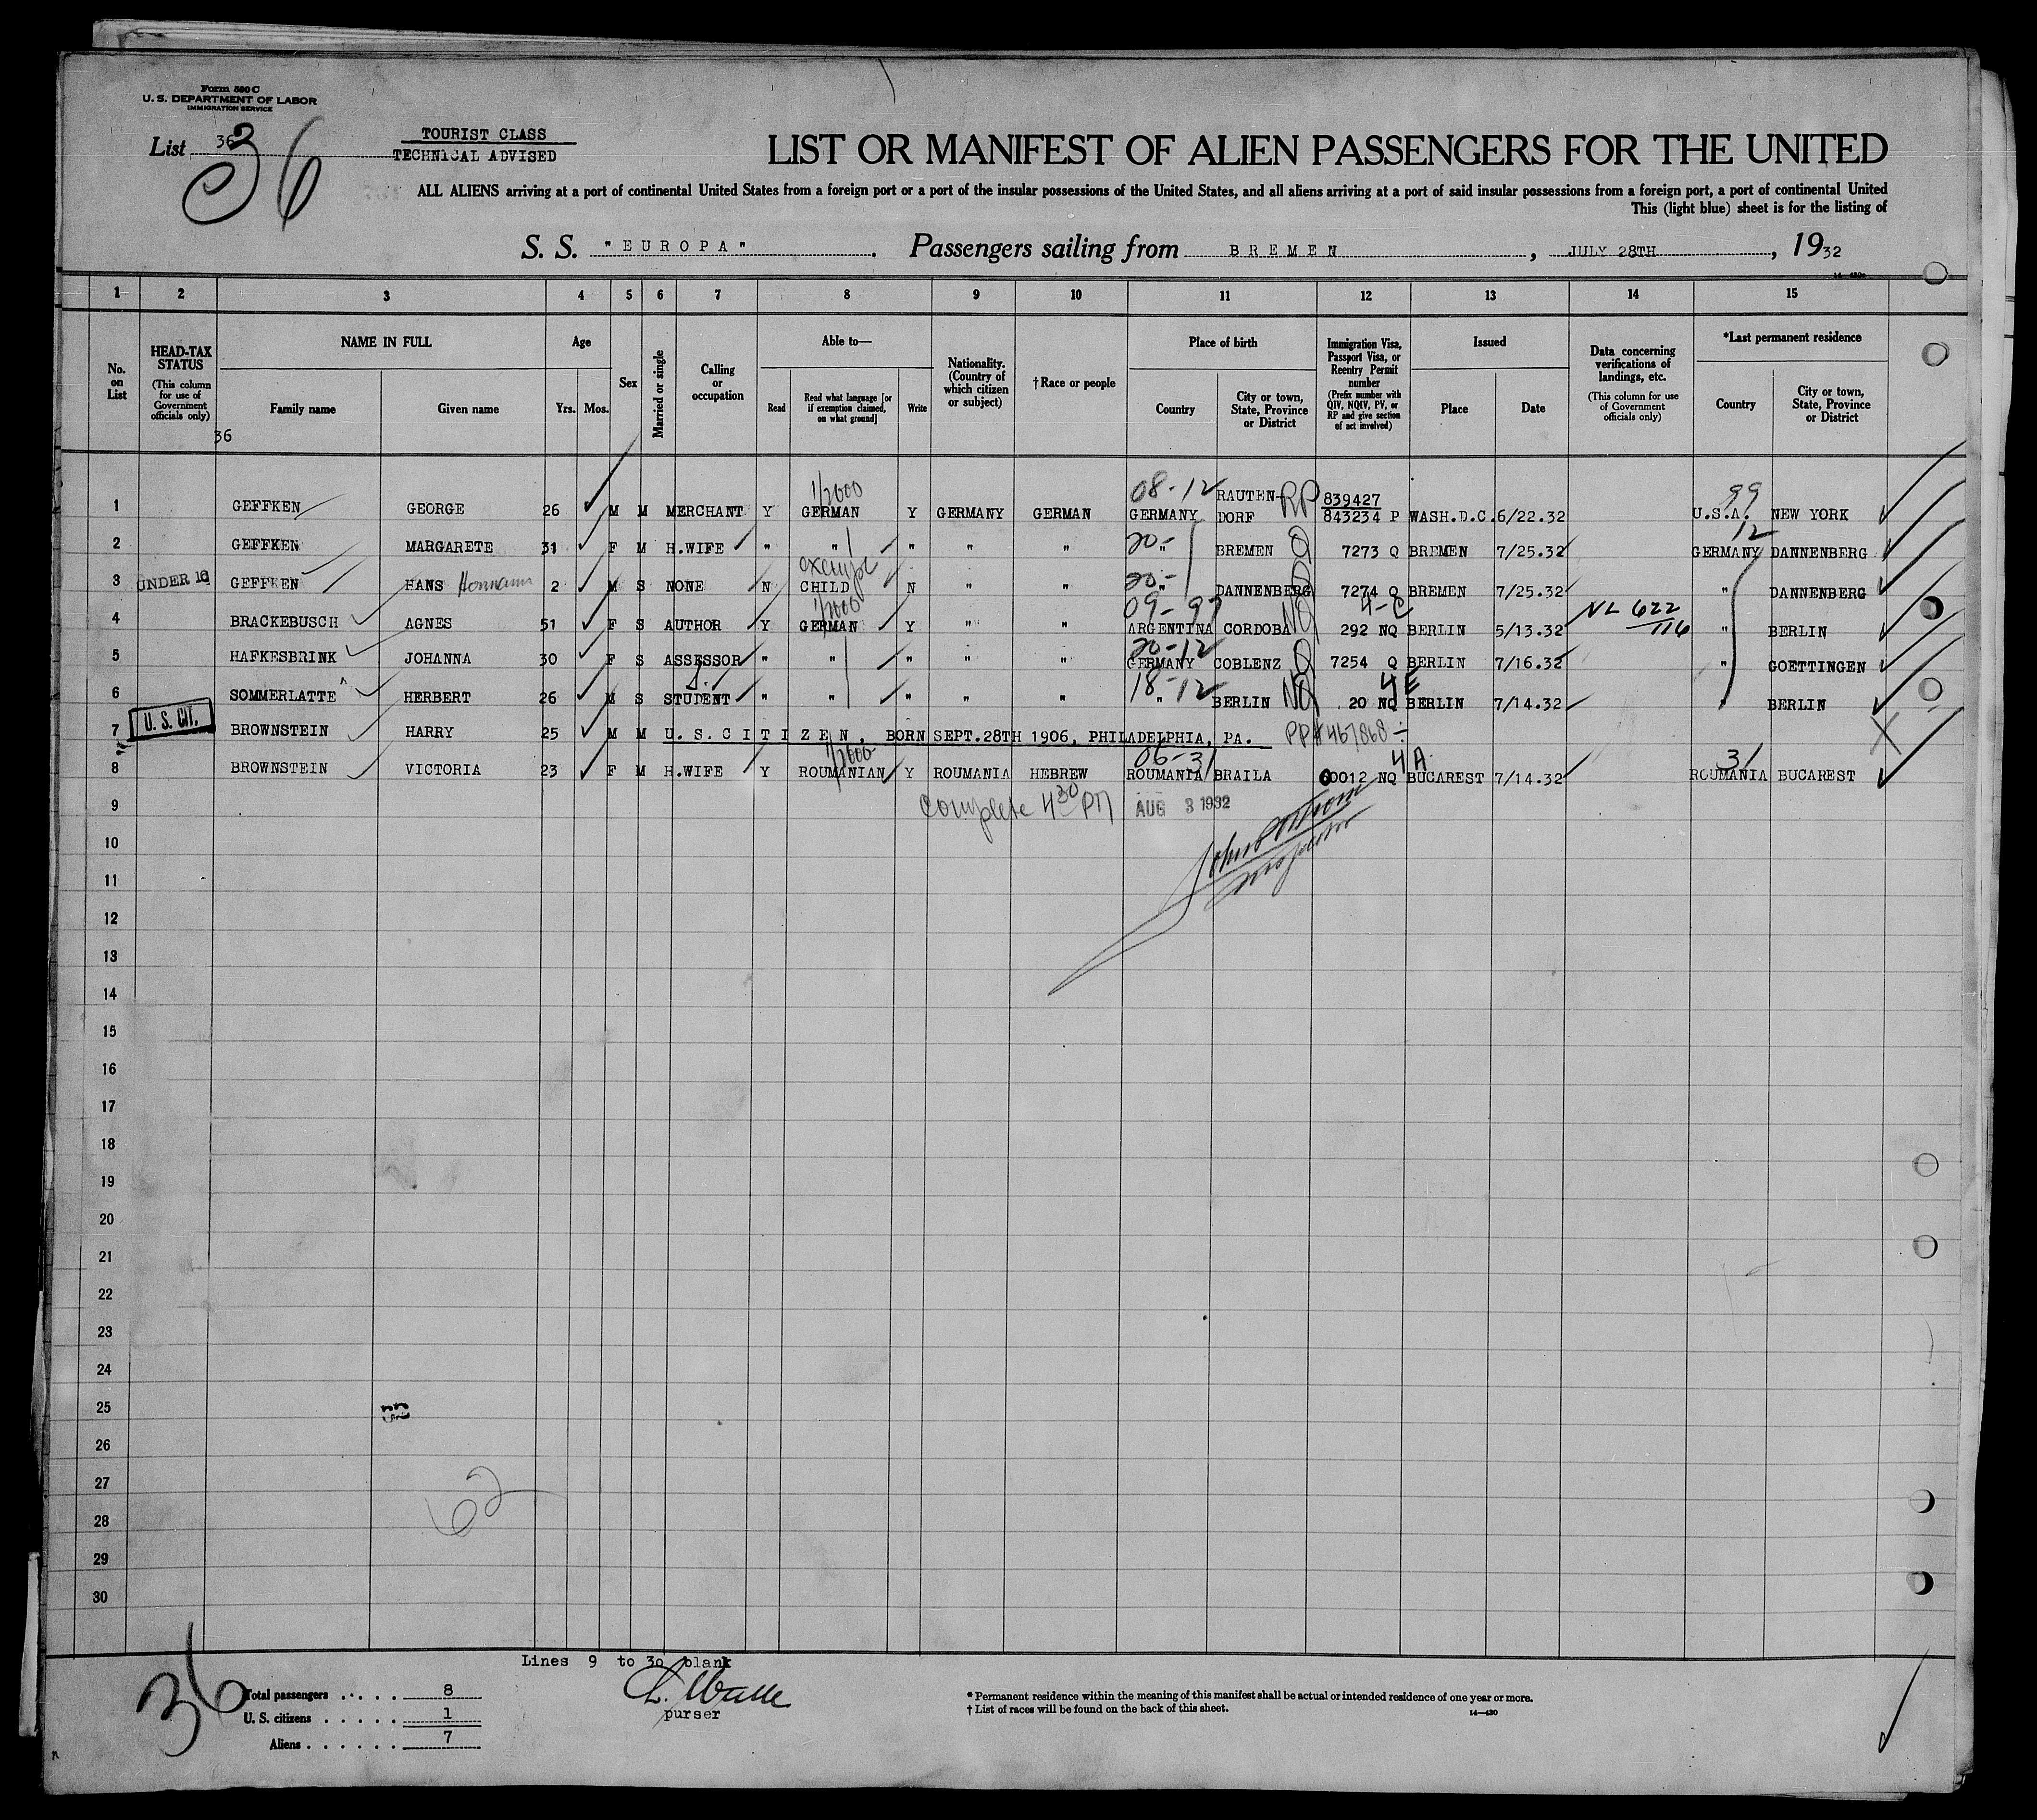 Form 500 C
U. S. DEPARTMENT OF LABOR
IMMIGRATION SERVICE
List 36
36
TOURIST CLASS
TECHNICAL ADVISED
LIST OR MANIFEST OF ALIEN PASSENGERS FOR THE UNITED
ALL ALIENS arriving at a port of continental United States from a foreign port or a port of the insular possessions of the United States, and all aliens arriving at a port of said insular possessions from a foreign port, a port of continental United
This (light blue) sheet is for the listing of
S. S. "EUROPA". Passengers sailing from BREMEN, JULY 28TH, 1932
14-430a
1 2 3 4 5 6 7 8 9 10 11 12 13 14 15
No. on List
HEAD-TAX STATUS (This column for use of Government officials only)
NAME IN FULL
Family name
Given name
Age
Yrs. Mos.
Sex
Married or single
Calling or occupation
Able to—
Read
Read what language [or if exemption claimed, on what ground]
Write
Nationality. (Country of which citizen or subject)
†Race or people
Place of birth
Country
City or town, State, Province or District
Immigration Visa, Passport Visa, or Reentry Permit number (Prefix number with QIV, NQIV, PV, or RP and give section of act involved)
Issued
Place
Date
Data concerning verifications of landings, etc. (This column for use of Government officials only)
*Last permanent residence
Country
City or town, State, Province or District
36
1 GEFFKEN GEORGE 26 M M MERCHANT Y 1/2000 GERMAN Y GERMANY GERMAN 08-12 GERMANY RAUTEN-DORF RP 839427 843234 P WASH.D.C. 6/22.32 99 U.S.A. NEW YORK
2 GEFFKEN MARGARETE 31 F M H.WIFE " " " " " 20- " BREMEN Q 7273 Q BREMEN 7/25.32 12 GERMANY DANNENBERG
3 UNDER 16 GEFFKEN HANS Hermann 2 M S NONE N exempt CHILD N " " 20- " DANNENBERG Q 7274 Q BREMEN 7/25.32 " DANNENBERG
4 BRACKEBUSCH AGNES 51 F S AUTHOR Y 1/2000 GERMAN Y " " 09-97 ARGENTINA CORDOBA NQ 4-C 292 NQ BERLIN 5/13.32 NL 622/116 " BERLIN
5 HAFKESBRINK JOHANNA 30 F S ASSESSOR " " " " " 20-12 GERMANY COBLENZ Q 7254 Q BERLIN 7/16.32 " GOETTINGEN
6 SOMMERLATTE HERBERT 26 M S STUDENT " " " " " 18-12 " BERLIN NQ 4E 20 NQ BERLIN 7/14.32 BERLIN
U. S. CIT.
7 BROWNSTEIN HARRY 25 M M U.S.CITIZEN, BORN SEPT.28TH 1906, PHILADELPHIA, PA. PP# 467868 X
8 BROWNSTEIN VICTORIA 23 F M H.WIFE Y 1/2000 ROUMANIAN Y ROUMANIA HEBREW 06-31 ROUMANIA BRAILA 4A 60012 NQ BUCAREST 7/14.32 31 ROUMANIA BUCAREST
9 complete 4 30 PM AUG 3 1932
Inspector
10
11
12
13
14
15
16
17
18
19
20
21
22
23
24
25
26
27
62
28
29
30
Lines 9 to 30 blank
36
Total passengers ..... 8
U. S. citizens ..... 1
Aliens ...... 7
purser
* Permanent residence within the meaning of this manifest shall be actual or intended residence of one year or more.
† List of races will be found on the back of this sheet.
14—430